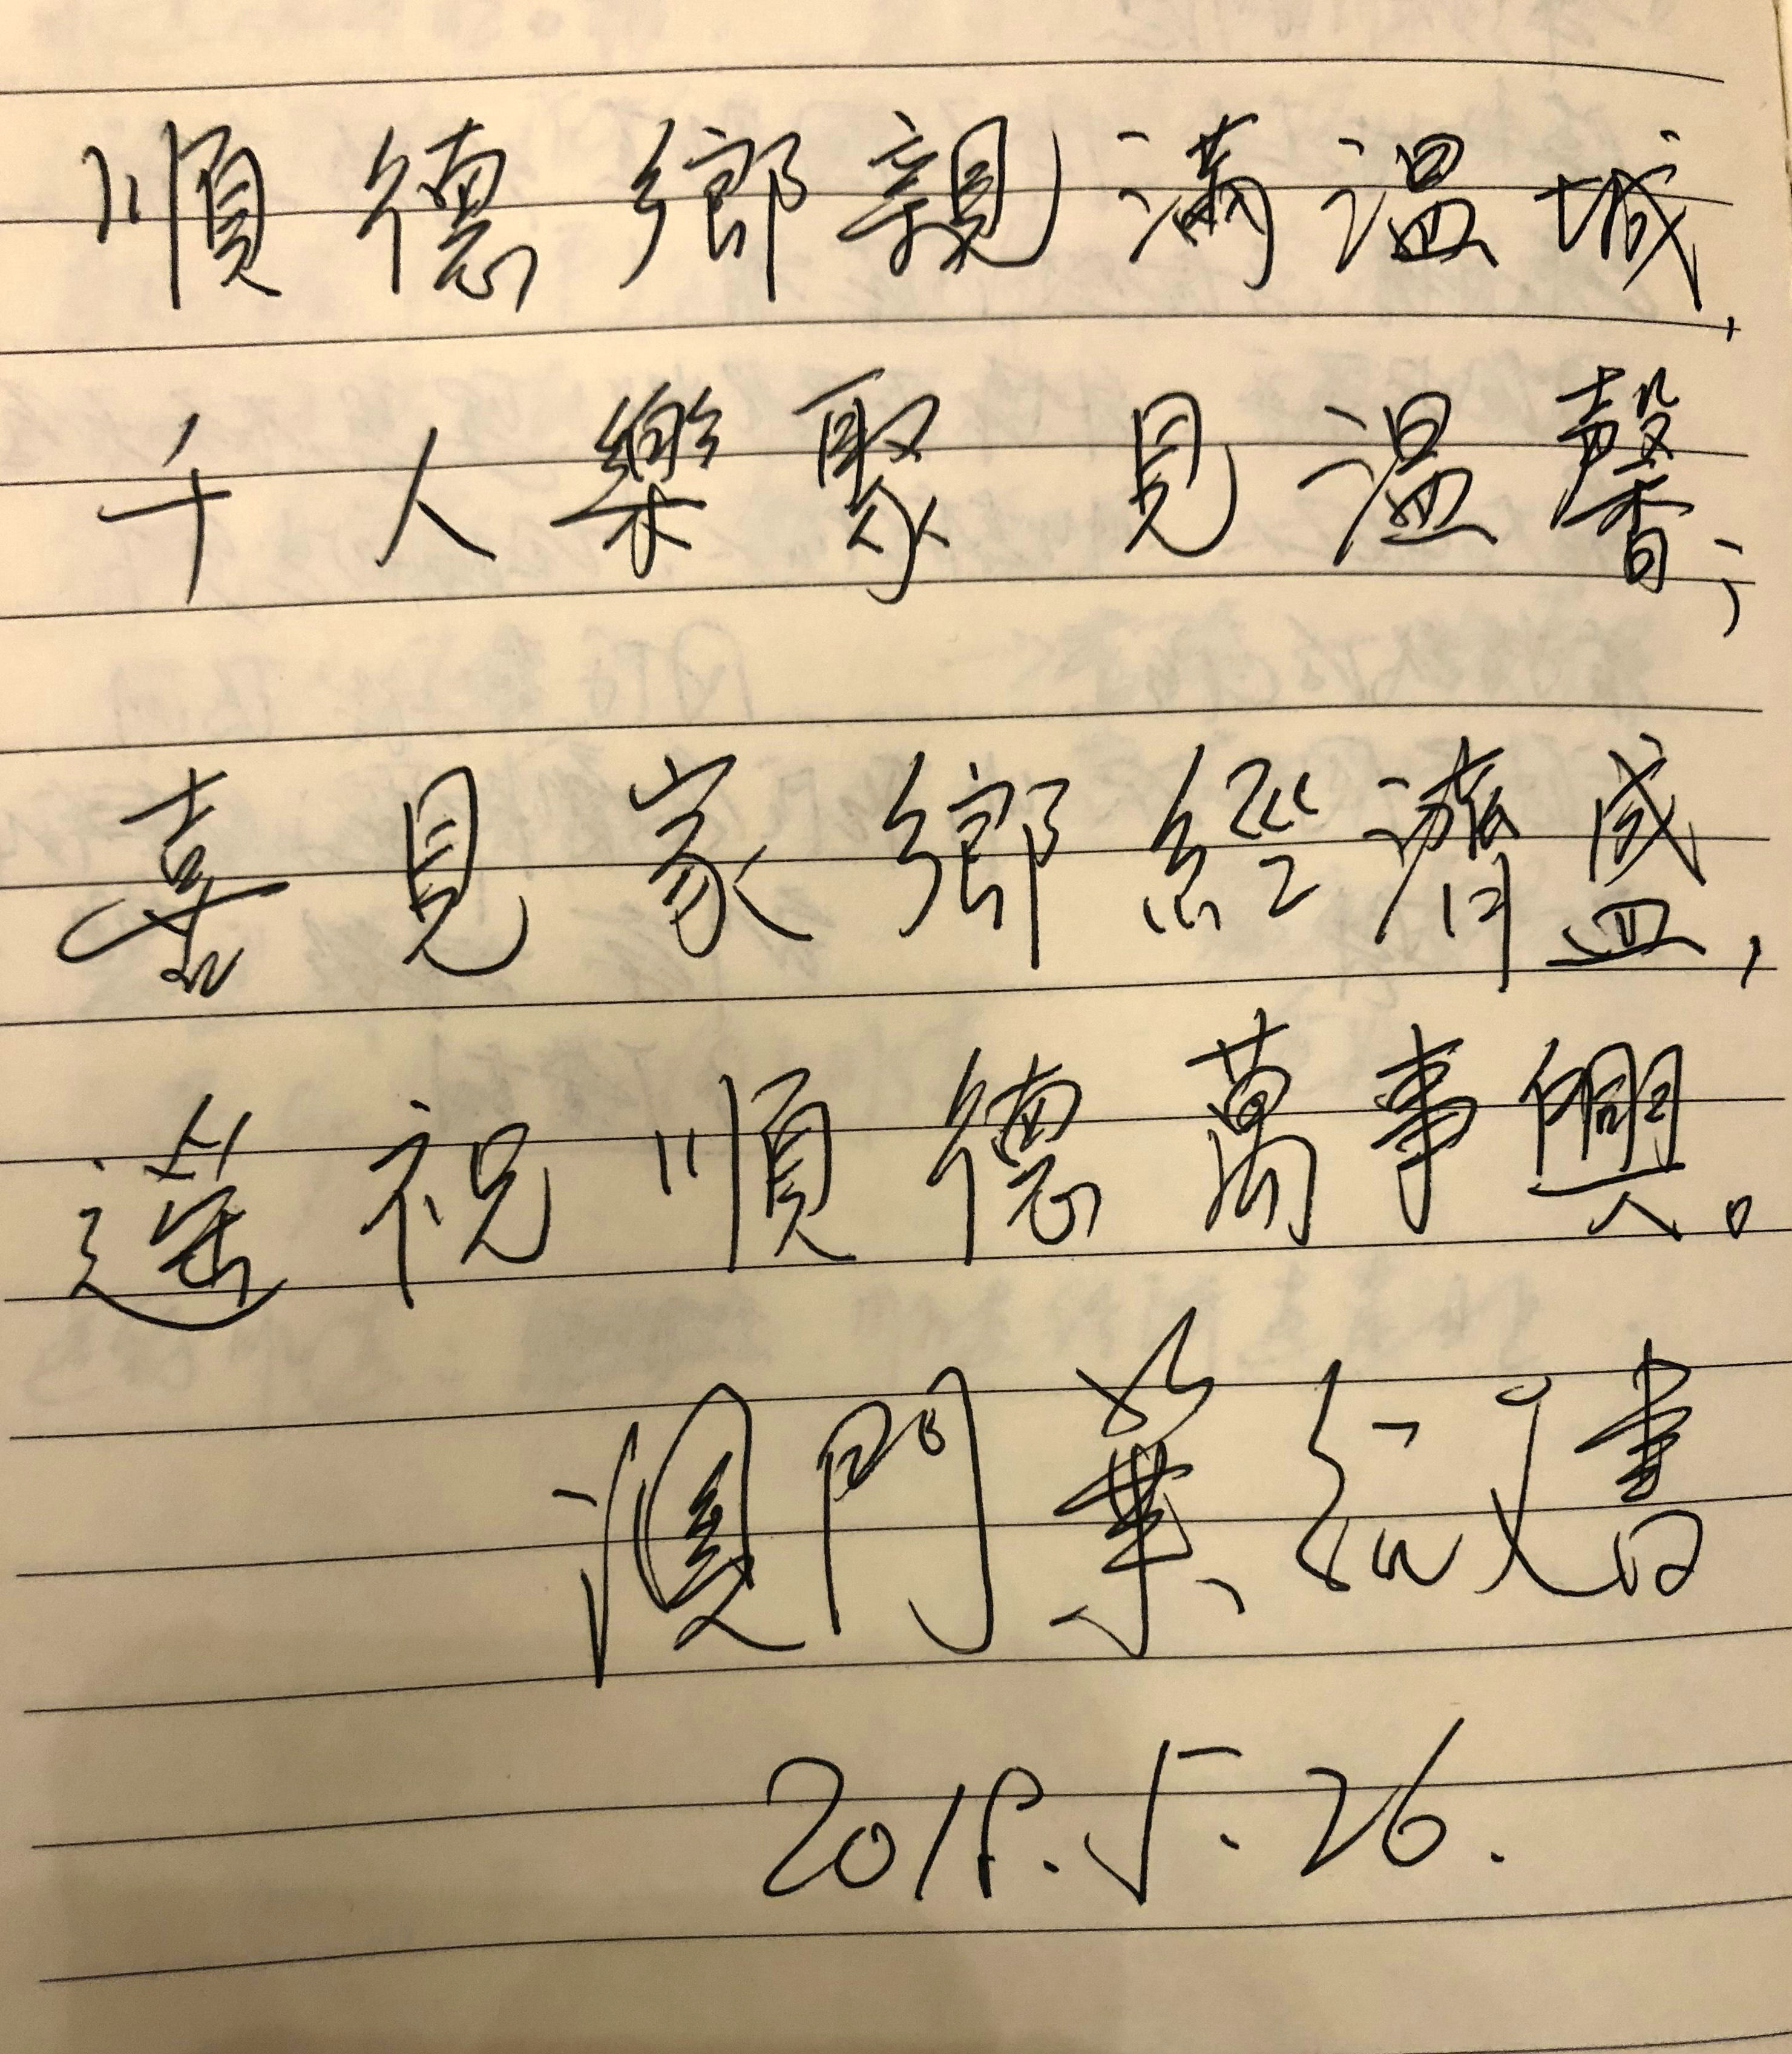 順德鄉親滿溫城,
千人樂聚見溫馨;
喜見家鄉經濟盛,
遙祝順德萬事興。
澳門葉紹文書
2018.5.26.